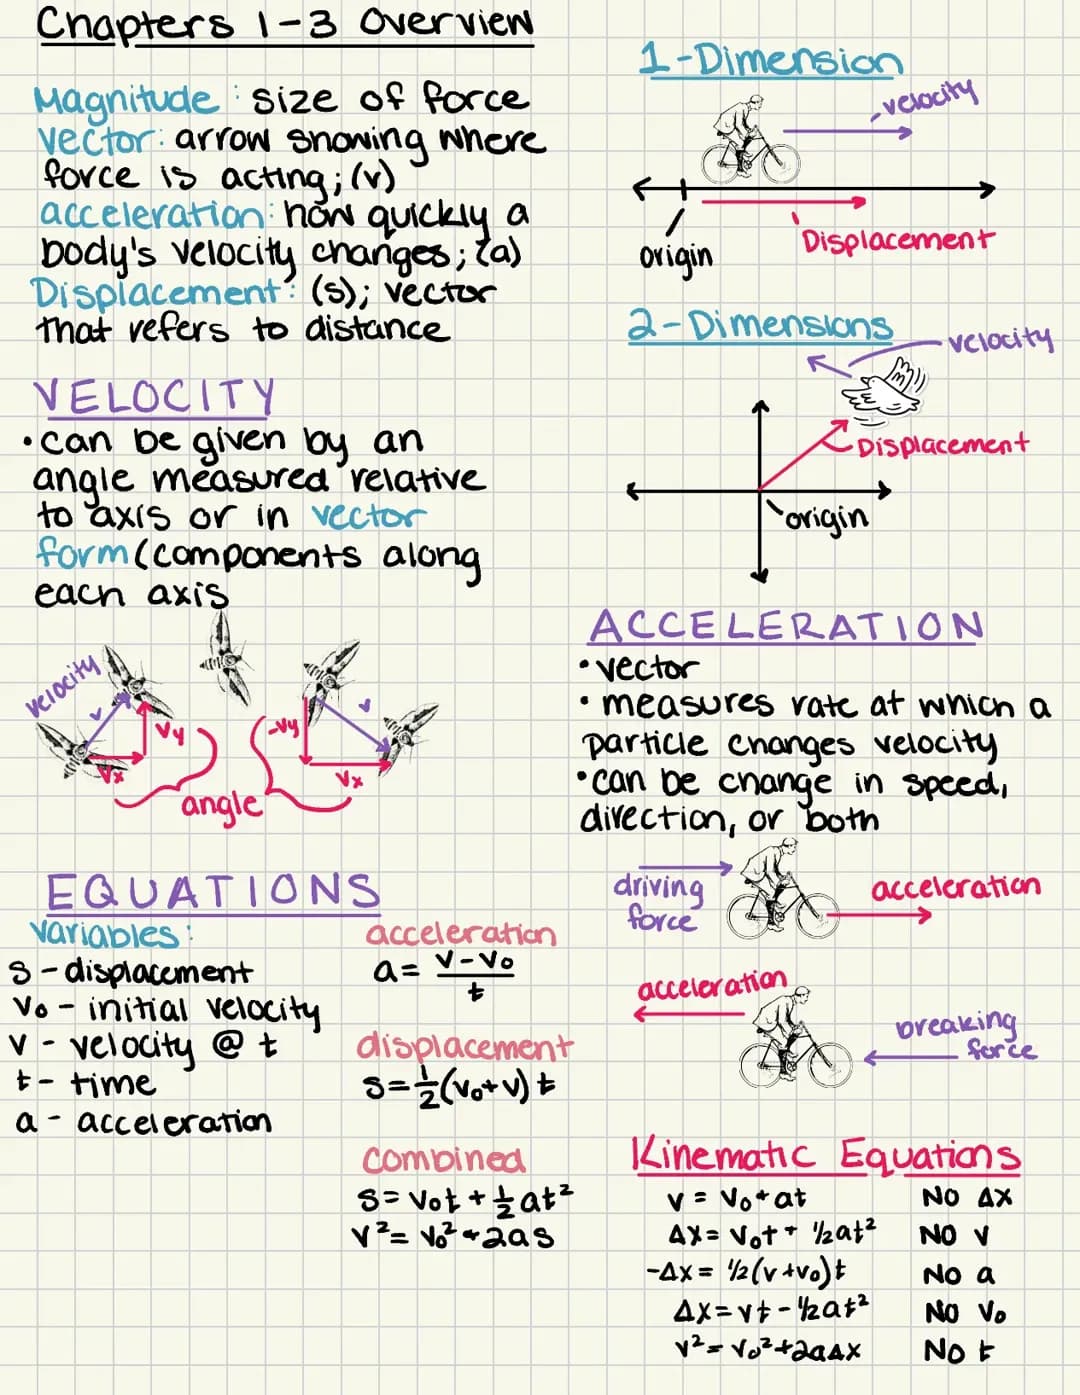 Chapters 1-3 Overview
Magnitude: size of force
vector: arrow showing where
force is acting; (v)
acceleration: how quickly a
body's velocity changes; (a)
Displacement: (s); vector
that refers to distance
VELOCITY
• can be given by an
angle measured relative
to axis or in vector
form (components along
each axis
velocity
v
Vy
Vx
-Vy
v
Vx
angle
EQUATIONS
variables:
s - displacement
V₀ - initial velocity
v - velocity @ t
t - time
a - acceleration
acceleration
a = v-v₀/t
displacement
s=½(v₀+v)t
combined
s=v₀t+½at²
v²=v₀²+2as
1-Dimension
velocity
origin
Displacement
2-Dimensions
velocity
Displacement
origin
ACCELERATION
• vector
• measures rate at which a
particle changes velocity
• can be change in speed,
direction, or both
driving
force
acceleration
acceleration
breaking
force
Kinematic Equations
v = v₀+at No Δx
Δx= v₀t + ½at² No v
-Δx= ½(v+v₀)t No a
Δx=vt-½at² No v₀
v²=v₀²+2aΔx No t